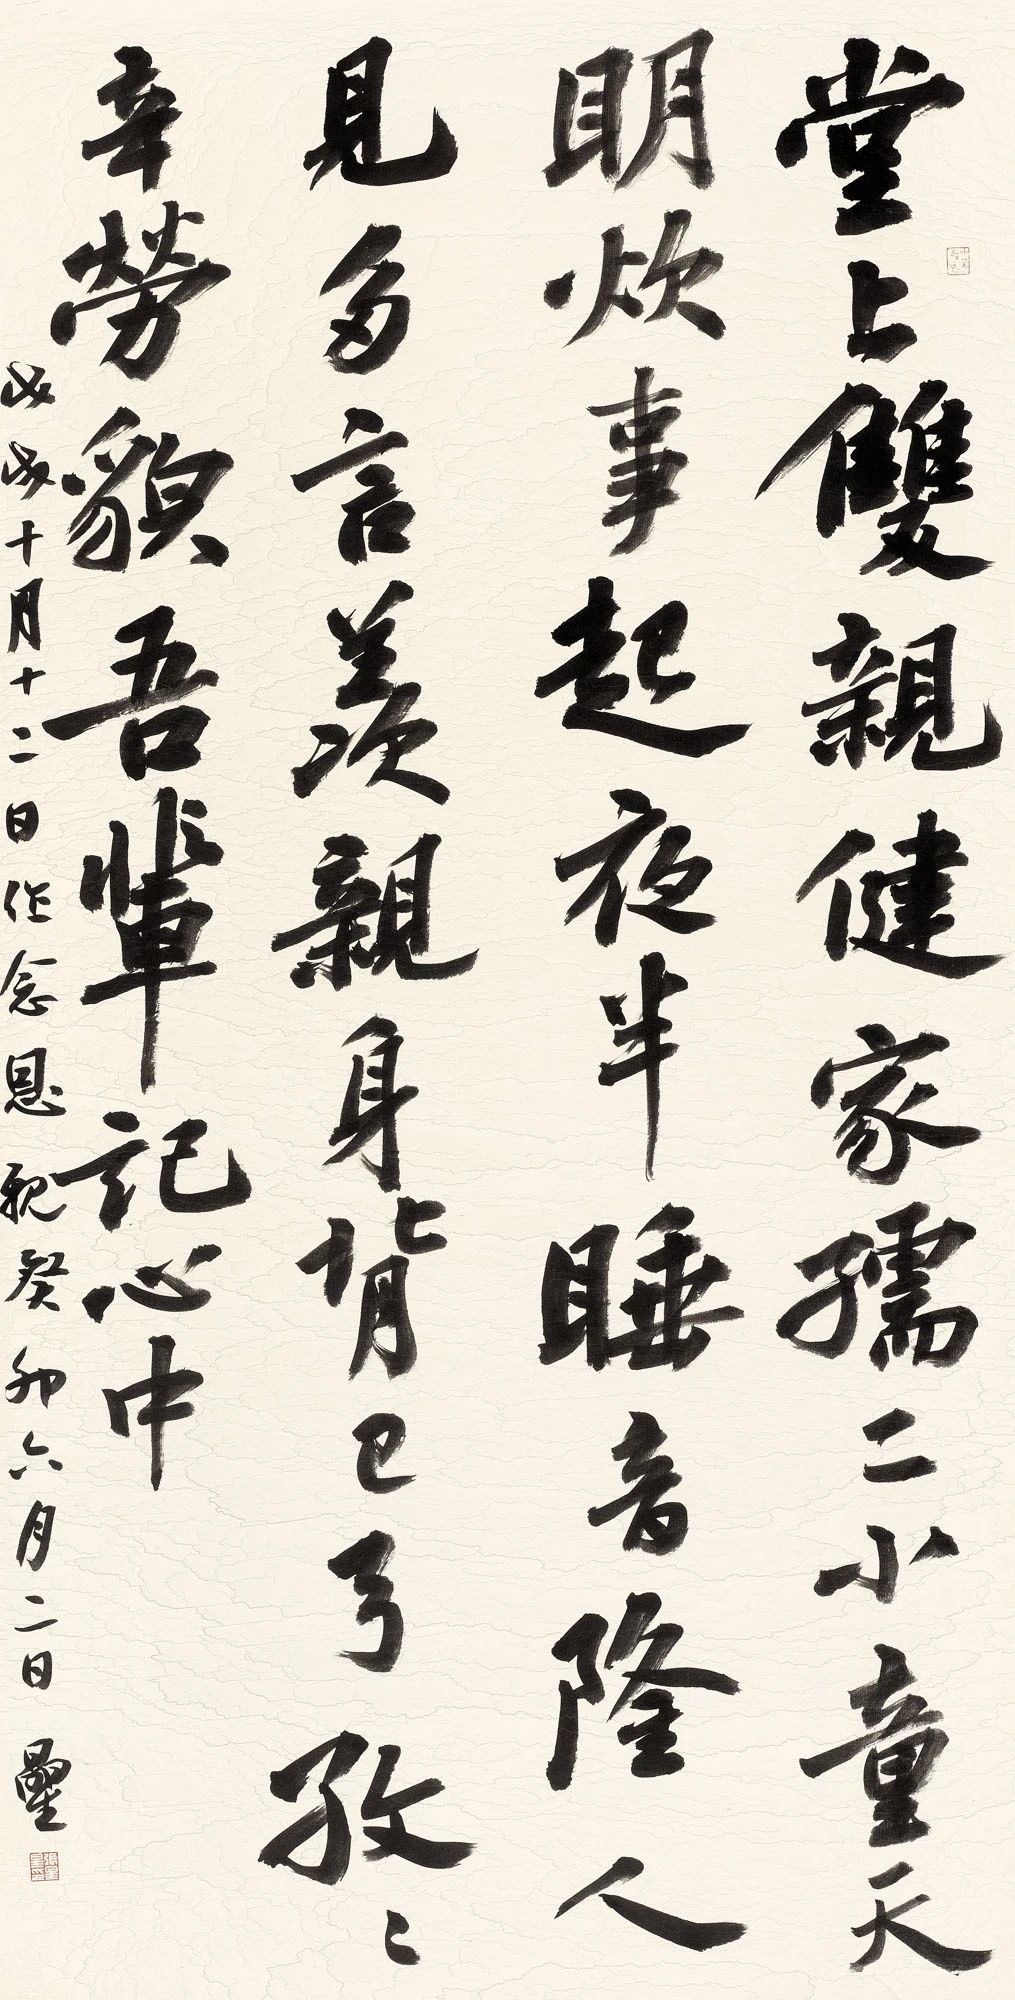 堂上雙親健家孺二小童天
明炊事起夜半睡音隆人
見多言羨親身背已弓孜〻
辛勞貌吾輩記心中
戊戌十月十二日作念恩親癸卯六月二日